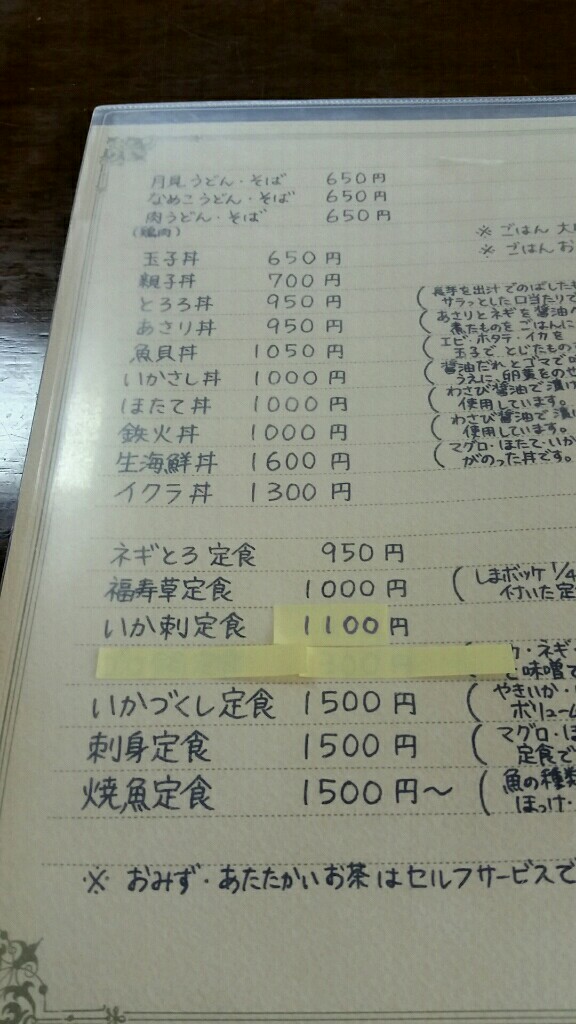 月見うどん・そば 650円
なめこうどん・そば 650円
肉うどん・そば 650円
(鶏肉)
※ ごはん 大
※ ごはん お
玉子丼 650円
親子丼 700円
とろろ丼 950円 (長芋を出汁でのばした
サラッとした口当たりで
あさり丼 950円 (あさりとネギを醤油
煮たものをごはんに
魚貝丼 1050円 (エビ・ホタテ・イカを
玉子で とじたもの
いかさし丼 1000円 (醤油だれとゴマで
うえに、卵黄をのせ
ほたて丼 1000円 (わさび醤油で漬け
使用しています。
鉄火丼 1000円 (わさび醤油で漬
使用しています。
生海鮮丼 1600円 (マグロ・ほたて・いか
がのった丼です。
イクラ丼 1300円
ネギとろ定食 950円
福寿草定食 1000円 (しまボッケ 1/4
付いた定
いか刺定食 1100円
・ネギ・
味噌で
いかづくし定食 1500円 (やきいか・
ボリューム
刺身定食 1500円 (マグロ・ほ
定食で
焼魚定食 1500円～ (魚の種類
ほっけ・
※ おみず・あたたかいお茶はセルフサービスで